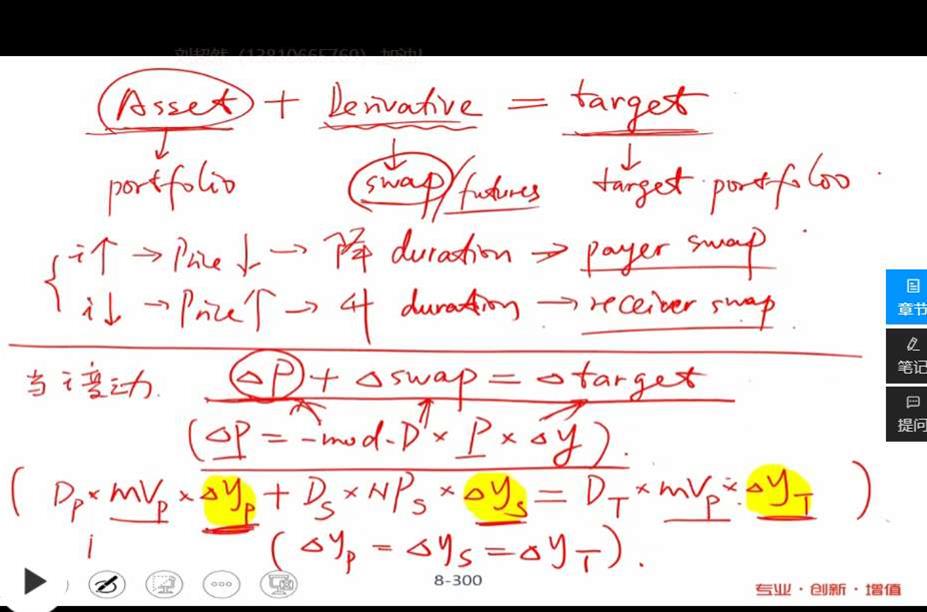 Asset + Derivative = target
portfolio swap/futures target portfolio
i↑ → Price ↓ → 降 duration → payer swap
i↓ → Price ↑ → 升 duration → receiver swap
当 i 变动. ΔP + Δswap = Δtarget
(ΔP = -mod.D × P × ΔY).
(D_P × MV_P × ΔY_P + D_S × NP_S × ΔY_S = D_T × MV_P × ΔY_T)
(ΔY_P = ΔY_S = ΔY_T).
8-300
专业・创新・增值
章节
笔记
提问